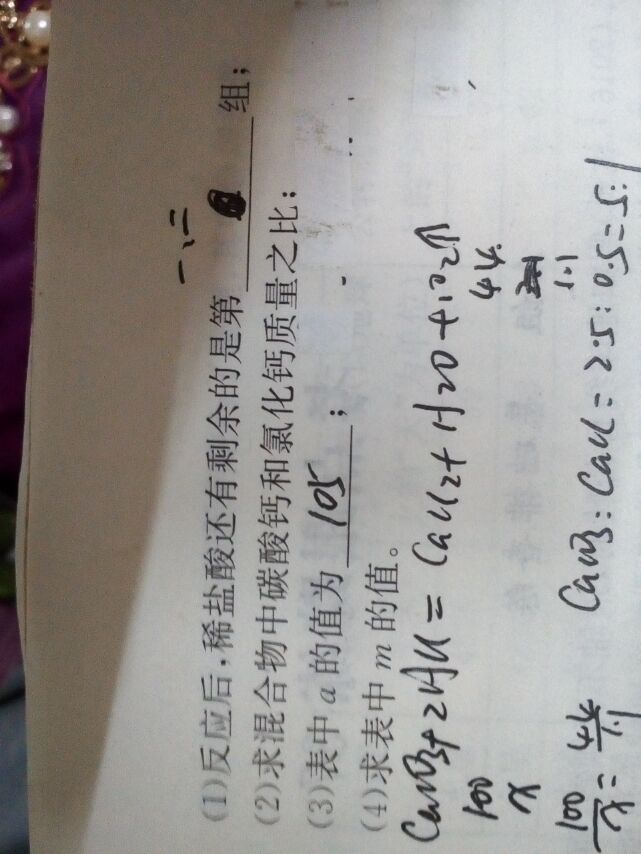 一、二
(1)反应后,稀盐酸还有剩余的是第 组;
(2)求混合物中碳酸钙和氯化钙质量之比;
(3)表中 a 的值为 105 ;
(4)求表中 m 的值。
CaCO3+2HCl=CaCl2+H2O+CO2↑
100 44
x 1.1
100/x=44/1.1 CaCO3:CaCl=2.5:0.5=5:1